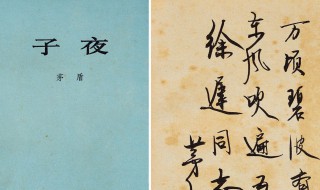 子夜
茅盾
万顷碧波
东风吹遍五
徐遲同志
茅